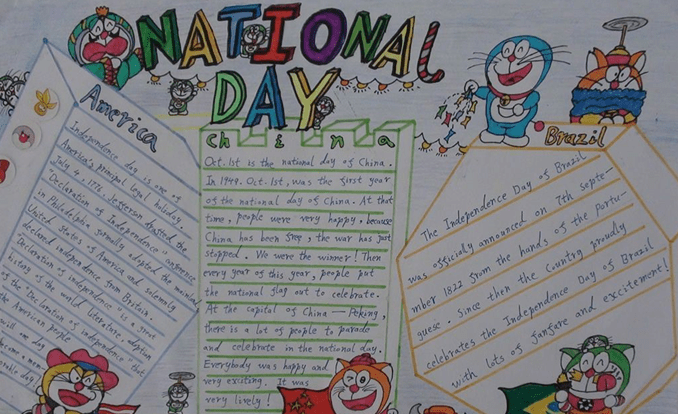 NATIONAL
DAY
America
Independence day is one of
America's principal legal holiday.
July 4, 1776, Jefferson drafted the
"Declaration of Independence" conference
in Philadelphia formally adopted the
United States of America and solemnly
declared independence from Britain.
Declaration of independence "is a
history of the world literature, adoption
of the Declaration of independence" that
the American people
will one day
become a
China
Oct. 1st is the national day of China.
In 1949. Oct. 1st, was the first year
of the national day of China. At that
time, people were very happy, because
China has been free, the war has just
stopped. We were the winner! Then
every year of this year, people put
the national flag out to celebrate.
At the capital of China — Peking,
there is a lot of people to parade
and celebrate in the national day.
Everybody was happy and
very exciting. It was
very lively!
Brazil
The Independence Day of Brazil
was officialy announced on 7th septe-
mber 1822 from the hands of the Portu-
guese. since then the Country proudly
celebrates the Independence Day of Brazil
with lots of fanfare and excitement!